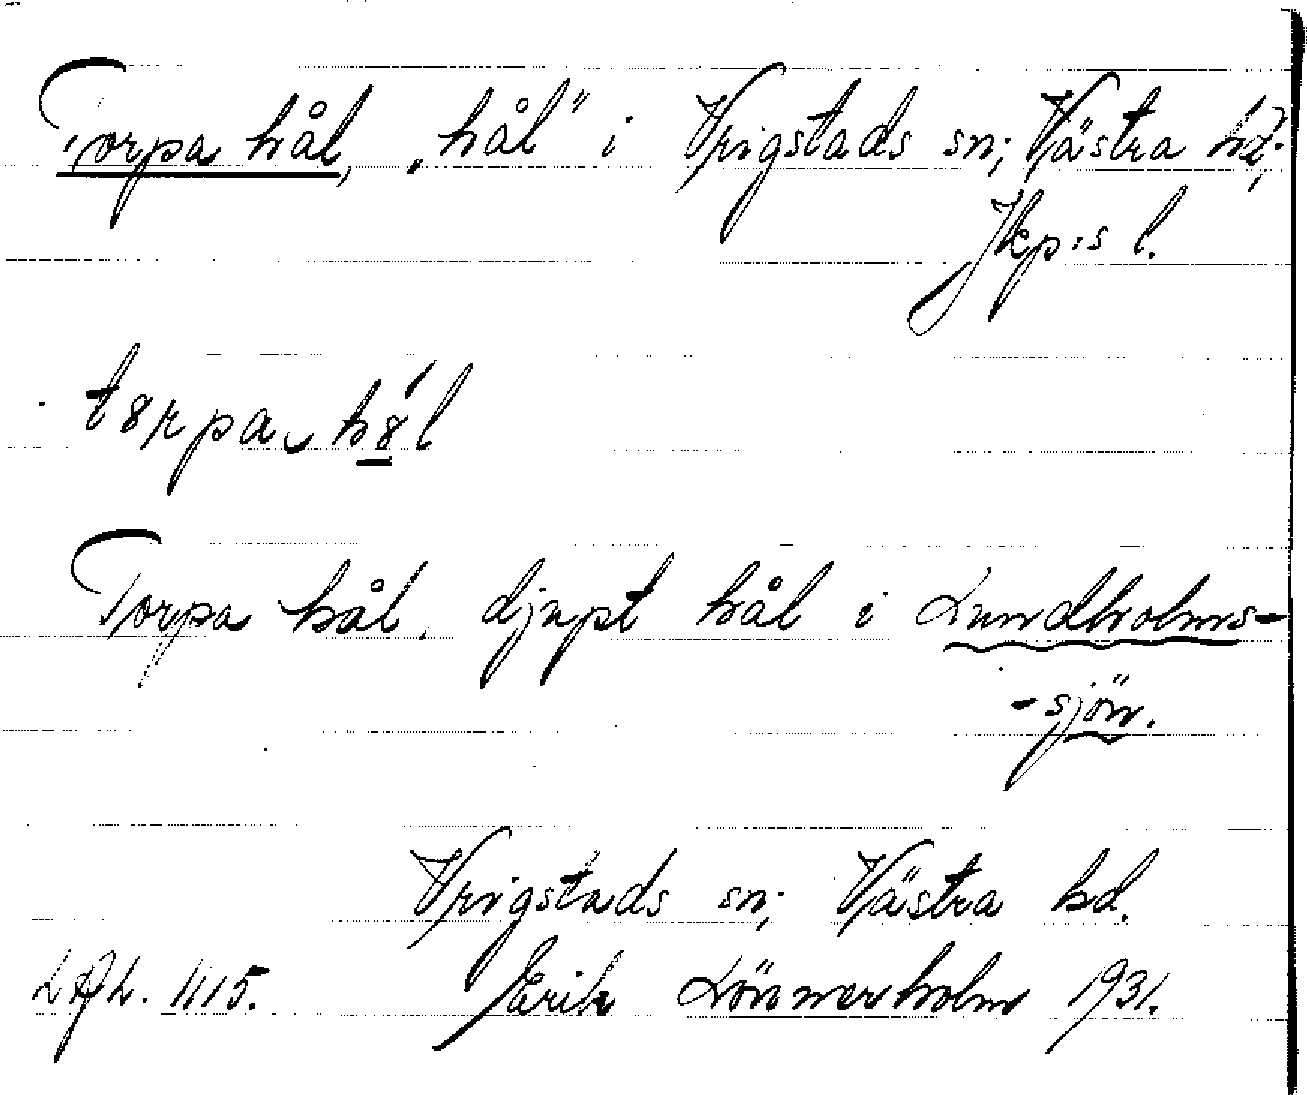 Torpa hål, "hål" i Vrigstads sn; Västra hd;
Jkp:s l.
Torpa hål. djupt hål i Lundholms-
-sjön.
Vrigstads sn; Västra hd.
1115. Erik Lönnerholm 1931.